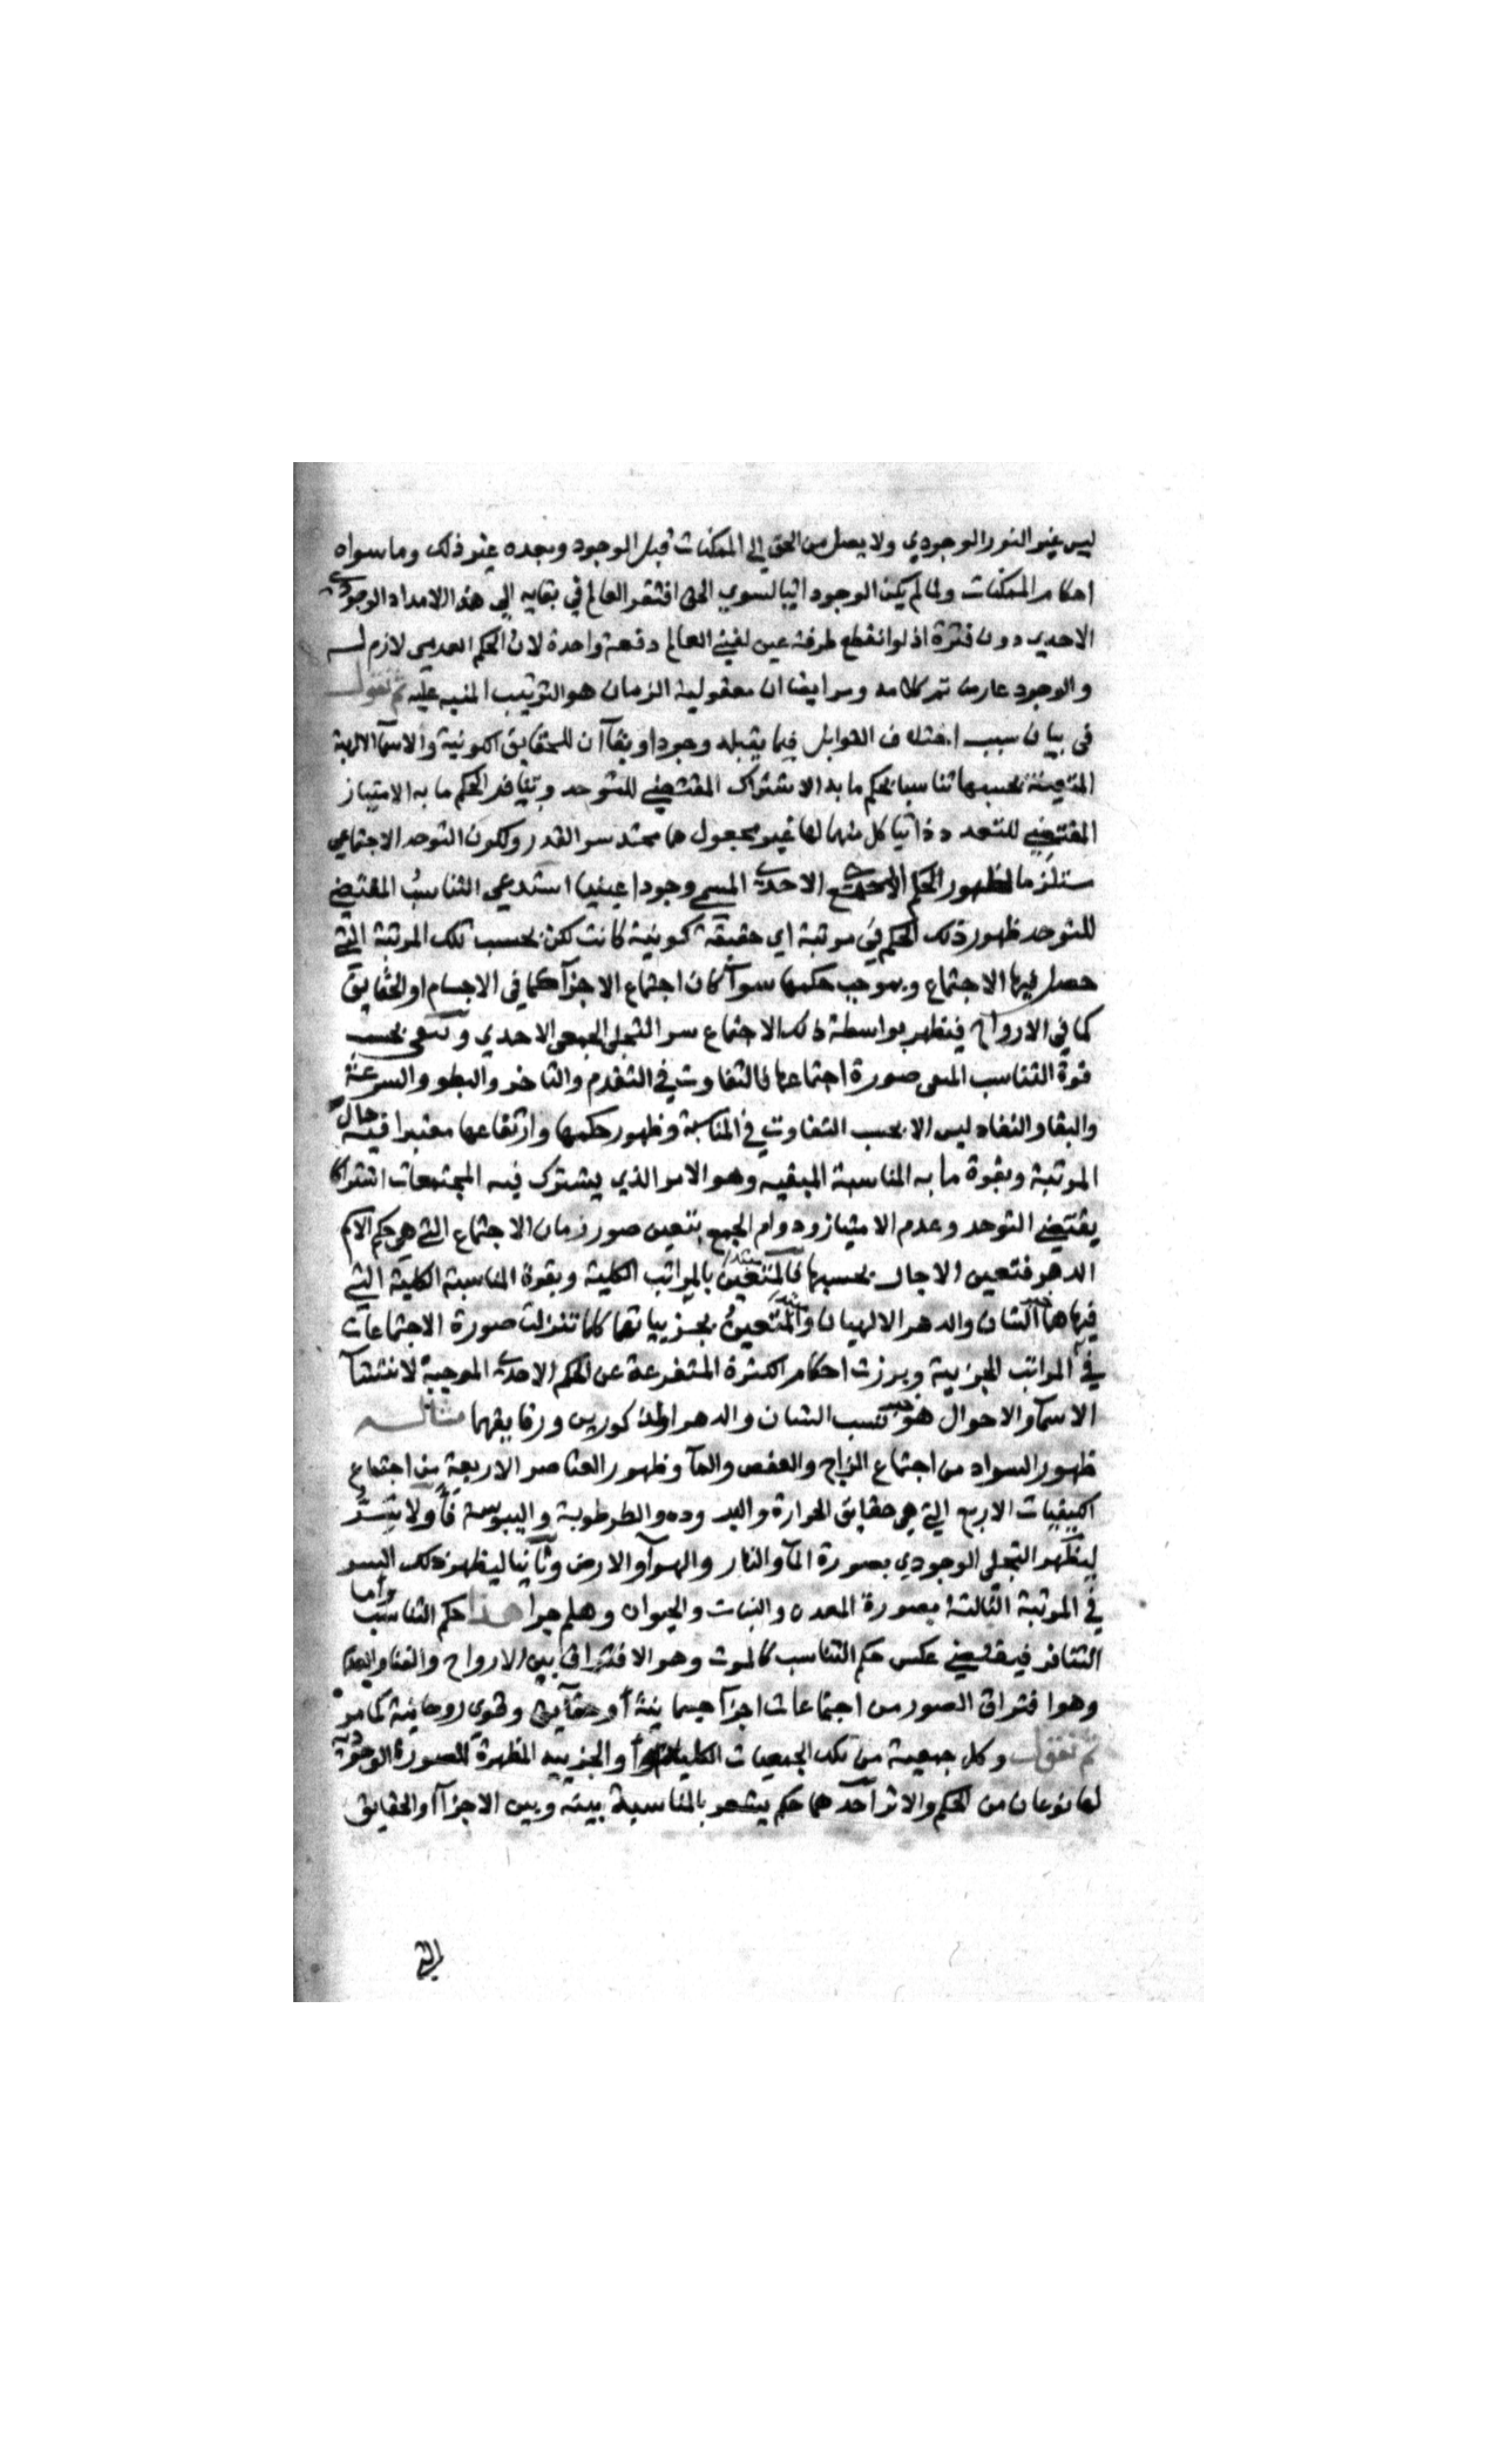 ليس غير النور الوجودي ولا يصل من الحق الى الممكنات قبل الوجود وبعده غير ذلك وما سواه
احكام الممكنات ولما لم يكن الوجود ذاتيا لسوي الحق افتقر العالم في بقايه الي هذا الامداد الوجودي
الاحدي دون فترة اذ لو انقطع طرفة عين لفني العالم دفعة واحدة لان الحكم العدمي لازم له
والوجود عارض تم كلامه ومر ايضا ان معقولية الزمان هو الترتيب المنبه عليه ثم نقول
في بيان سبب اختلاف القوابل فيما يقبله وجودا وبقآ ان للحقايق الكونية والاسمآ الالهية
المتعينة بحسبها تناسبا بحكم ما به الاشتراك المقتضي للتوحد وتنافرا بحكم ما به الامتياز
المقتضي للتعدد ذاتيا كل منهما لها غير مجعول هما محتد سر القدر ولكون التوحد الاجتماعي
مستلزما لظهور الحكم الجمعي الاحدي المسمي وجودا عينيا استدعي التناسب المقتضي
للتوحد ظهور ذلك الحكم في مرتبة اي حقيقة كونية كانت لكن بحسب تلك المرتبة التي
حصل فيها الاجتماع وبموجب حكمها سوآ كان اجتماع الاجزآ كما في الاجسام او الحقايق
كما في الارواح فيظهر بواسطة ذلك الاجتماع سر التجلي الجمعي الاحدي ويبقي بحسب
قوة التناسب المبقي صورة اجتماعها فالتفاوت في التقدم والتاخر والبطو والسرعة
والبقا والنفاد ليس الا بحسب التفاوت في المناسبة وظهور حكمها وارتفاعها معتبرا فيه حال
المرتبة وبقوة ما به المناسبة المبقيه وهو الامر الذي يشترك فيه المجتمعات اشتراكا
يقتضي التوحد وعدم الامتياز ودوام الجمع بتعين صور زمان الاجتماع التي هي حكم الاسم
الدهر فتعين الاجال بحسبها فالمتعين بالمراتب الكلية وبقوة المناسبة الكلية التي
فيها هما الشان والدهر الالهيان والمتعين بجزيياتها كلما تنزلت صورة الاجتماعات
في المراتب الجزيية وبرزت احكام الكثرة المتفرعة عن الحكم الاحدي الموجبة لانتشآ
الاسمآ والاحوال هو نسب الشان والدهر المذكورين ورقايقهما مثاله
ظهور السواد من اجتماع الزاج والعفص والمآ وظهور العناصر الاربعة من اجتماع
الكيفيات الاربع التي هي حقايق الحرارة والبرودة والرطوبة واليبوسة فاولا
ليظهر التجلي الوجودي بصورة المآ والنار والهوآ والارض وثانيا ليظهر ذلك السر
في المرتبة الثالثة بصورة المعدن والنبات والحيوان وهلم جرا هذا حكم التناسب واما
التنافر فيقتضي عكس حكم التناسب كالموت وهو الافتراق بين الارواح والفنا والعدم
وهو افتراق الصور من اجتماعات اجزآ جسمانية او حقايق وقوي روحانية كما مر
ثم نقول وكل جمعية من تلك الجمعيات الكلية والجزييه المظهرة للصورة الوجودية
لها نوعان من الحكم والاثر احدهما حكم يشعر بالمناسبة بينه وبين الاجزآ والحقايق
التي